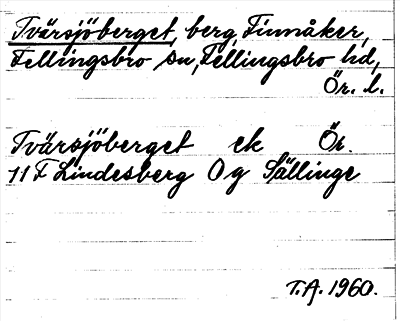 Tvärsjöberget, berg, Finnåker,
Fellingsbro sn, Fellingsbro hd,
Ör. l.
Tvärsjöberget ek Ör.
11 F Lindesberg Og Sällinge
T.A. 1960.